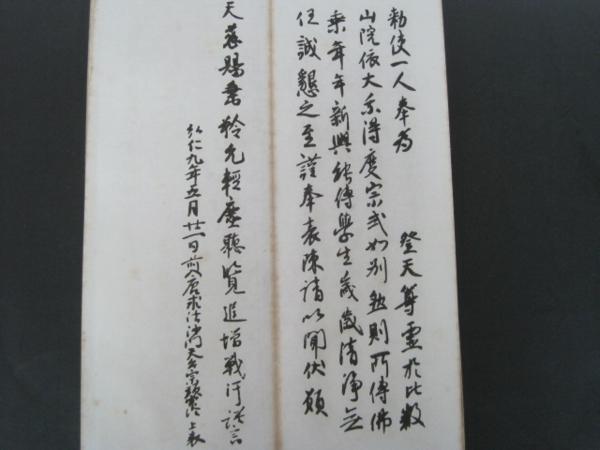 勅使一人奉為　登天尊霊於比叡
山院依大乗得度宗式如別然則所傳佛
乗年年新興能傳學生歳歳清浄無
任誠懇之至謹奉表陳請以聞伏願
天慈賜垂矜允輕塵聽覧追增戰汗謹言
弘仁九年五月廿一日前入唐求法沙門天台宗最澄上表